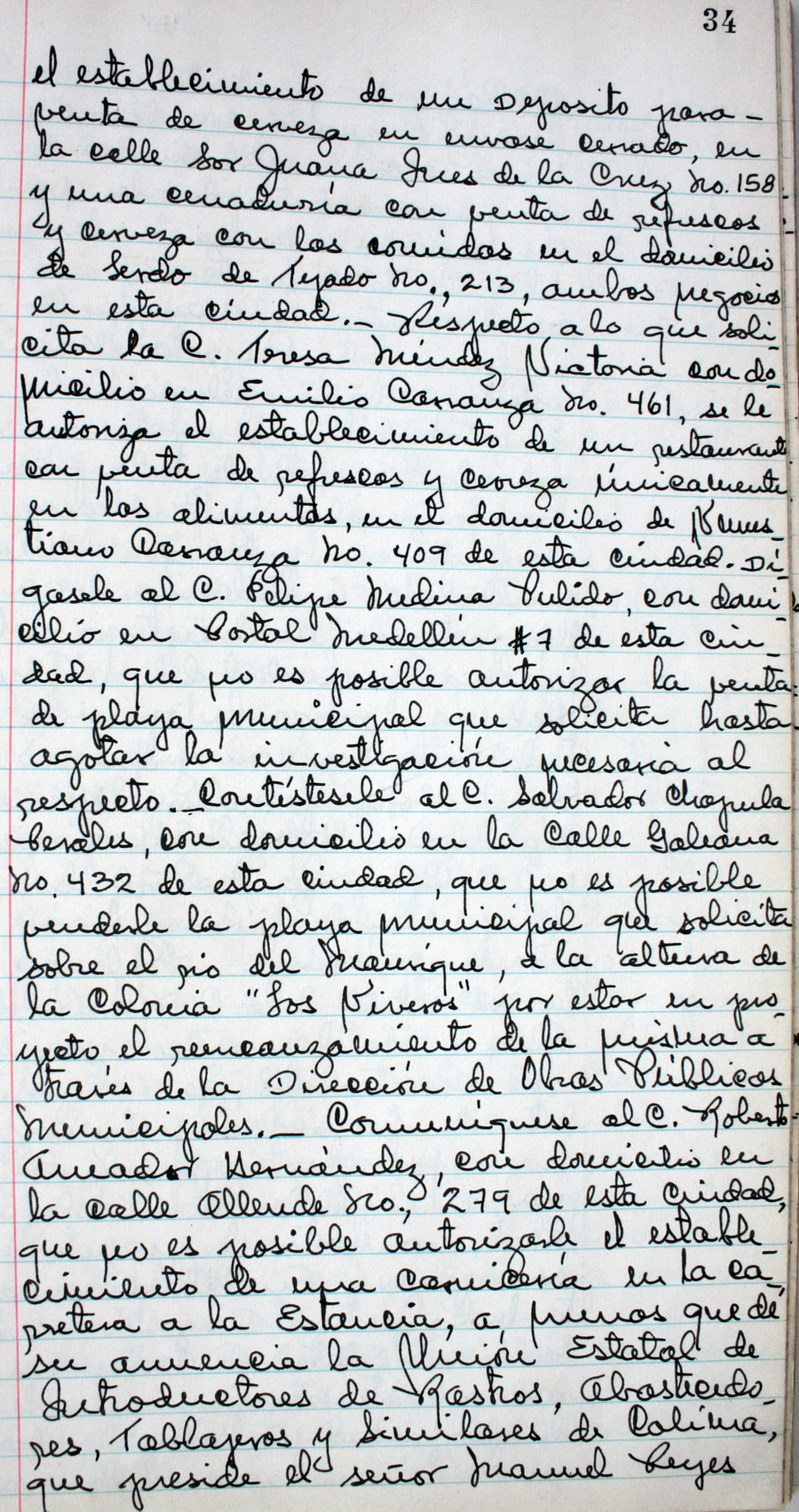 34
el establecimiento de un Deposito para -
venta de cerveza en envase cerrado, en
la calle Sor Juana Ines de la Cruz No. 158
y una cenaduría con venta de refrescos
y cerveza con las comidas en el domicilio
de Lerdo de Tejado No., 213, ambos negocios
en esta ciudad.- Respecto a lo que soli-
cita la C. Teresa Méndez Victoria con do-
micilio en Emilio Carranza No. 461, se le
autoriza el establecimiento de un restaurant
con venta de refrescos y cerveza únicamente
en los alimentos, en el domicilio de Venus-
tiano Carranza No. 409 de esta ciudad. Dí-
gasele al C. Felipe Medina Pulido, con domi-
cilio en Portal Medellín #7 de esta ciu-
dad, que no es posible autorizar la venta
de playa municipal que solicita hasta
agotar la investigación necesaria al
respecto.- Contéstesele al C. Salvador Chapula
Perales, con domicilio en la Calle Galeana
No. 432 de esta ciudad, que no es posible
venderle la playa municipal que solicita
sobre el rio del Manrique, a la altura de
la Colonia "Los Viveros" por estar en pro-
yecto el reencauzamiento de la misma a
través de la Dirección de Obras Públicas
Municipales.- Comuníquese al C. Roberto
Amador Hernández, con domicilio en
la calle Allende No., 279 de esta ciudad,
que no es posible autorizarle el estable-
cimiento de una carnicería en la ca-
rretera a la Estancia, a menos que dé
su anuencia la Unión Estatal de
Introductores de Rastros, Abastecedo-
res, Tablajeros y Similares de Colima,
que preside el señor Manuel Reyes